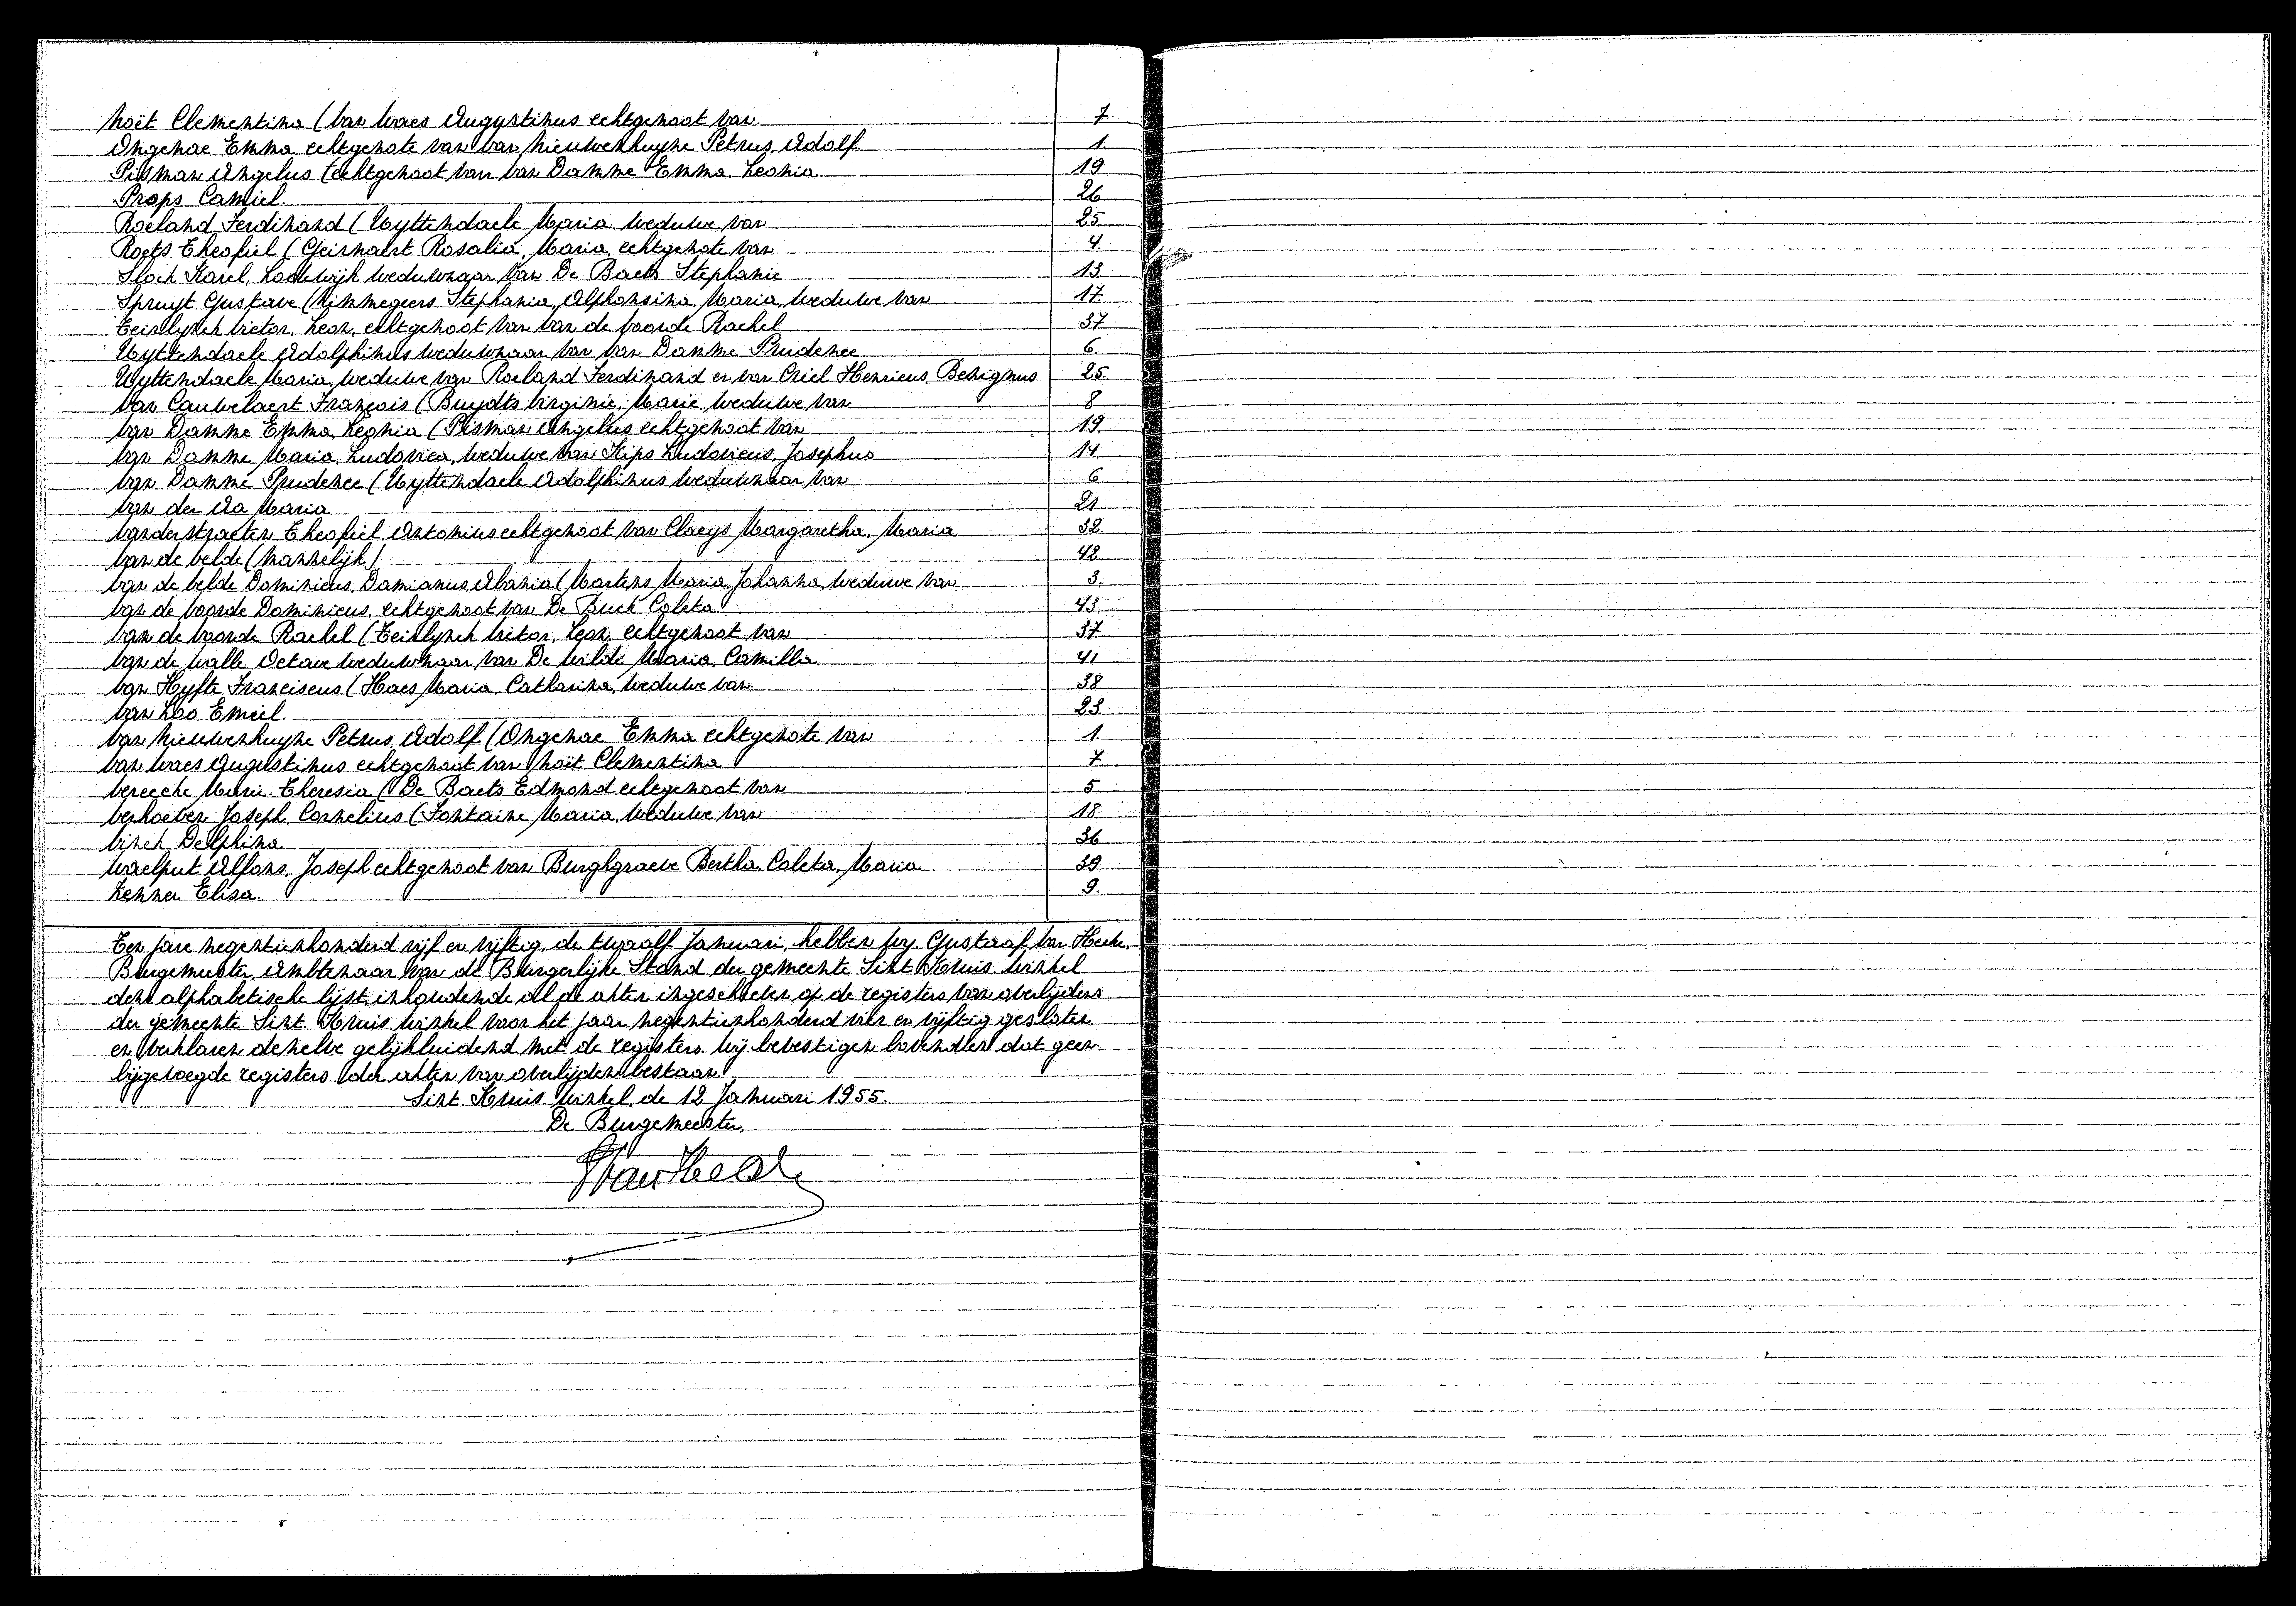 Noët Clementina (Van Waes Augustinus echtgenoot van 7
Ongenae Emma echtgenote van Van Nieuwenhuyse Petrus, Adolf 1.
Pisman Angelus echtgenoot van Van Damme Emma Leonia 19
Props Camiel. 26
Roeland Ferdinand (Uyttendaele Maria weduwe van 25
Roets Theofiel (Geirnaert Rosalia, Maria, echtgenote van 4.
Slock Karel, Lodewijk weduwnaar van De Baets Stephanie 13
Spruyt Gustave (Nimmegeers Stephania, Alphonsina, Maria, weduwe van 17
Teirlynck Victor, Leon, echtgenoot van Van de Voorde Rachel 37
Uyttendaele Adolphinus weduwnaar van Van Damme Prudence 6.
Uyttendaele Maria, weduwe van Roeland Ferdinand en van Criel Henricus, Benignus 25
Van Cauwelaert François (Buydts Virginie, Marie weduwe van 8
Van Damme Emma, Leonia (Pisman Angelus echtgenoot van 19
Van Damme Maria, Ludovica, weduwe van Kips Ludovicus, Josephus 14
Van Damme Prudence (Uyttendaele Adolphinus weduwnaar van 6
Van der Aa Maria 21
Vanderstraeten Theofiel, Antonius echtgenoot van Claeys Margaretha, Maria 32.
Van de Velde (mannelijk) 42.
Van de Velde Dominicus, Damianus, Abania (Martens Maria Johanna, weduwe van 3.
Van de Voorde Dominicus, echtgenoot van De Buck Coleta 43
Van de Voorde Rachel (Teirlynck Victor, Leon, echtgenoot van 37
Van de Walle Octave weduwnaar van De Wilde Maria, Camilla 41
Van Hyfte Franciscus (Haes Maria, Catharina, weduwe van 38
Van Loo Emiel. 23.
Van Nieuwenhuyse Petrus, Adolf (Ongenae Emma echtgenote van 1
Van Waes Augustinus echtgenoot van Noët Clementina 7
Vereecke Marie-Theresia (De Baets Edmond echtgenoot van 5
Verhoeven Joseph, Cornelius (Fontaine Maria, weduwe van 18
Vinck Delphina 36
Waelput Alfons, Joseph echtgenoot van Burghgraeve Bertha, Coleta, Maria 39
Zenner Elisa. 9.
Ten jare negentienhonderd vijf en vijftig, de twaalf Januari, hebben wy, Gustaaf Van Hecke,
Burgemeester, Ambtenaar van de Burgerlijke Stand der gemeente Sint Kruis Winkel
deze alphabetische lijst, inhoudende al de akten ingeschreven op de registers van overlijdens
der gemeente Sint Kruis Winkel voor het jaar negentienhonderd vier en vijftig gesloten
en verklaren dezelve gelijkluidend met de registers. Wij bevestigen bovendien dat geen
bijgevoegde registers der akten van overlijden bestaan.
Sint Kruis Winkel, de 12 Januari 1955.
De Burgemeester,
GVan Hecke